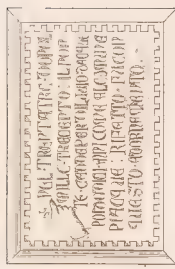 NEL TRENTATRE DOPO
MILLE TRECENTO : IL PON
TE CADDE PER DILUVIO DACQUE
ANNI COME AL COMUN
PIACQUE : RIFATTO FU CON
QUESTO ADORNAMENTO